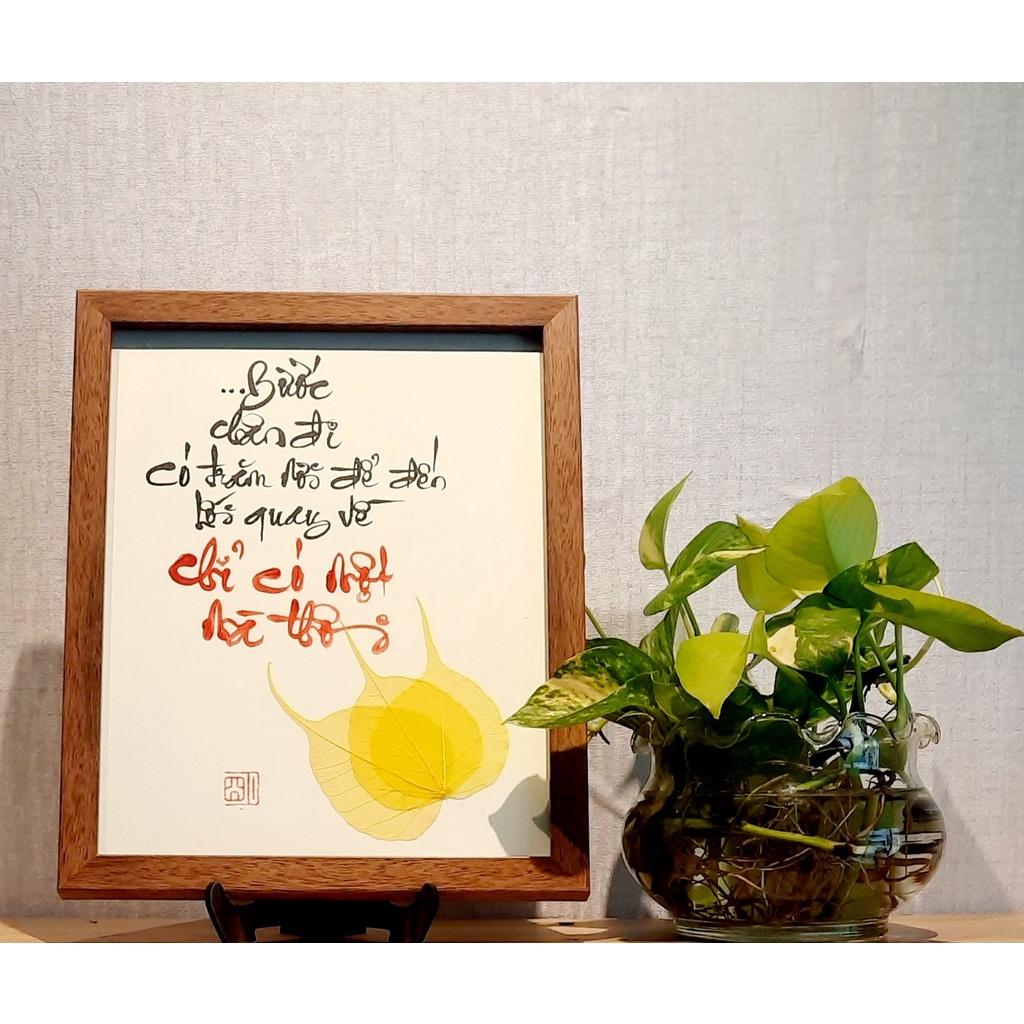 ...Bước
chân đi
có trăm lối để đến
lối quay về
chỉ có một
mà thôi